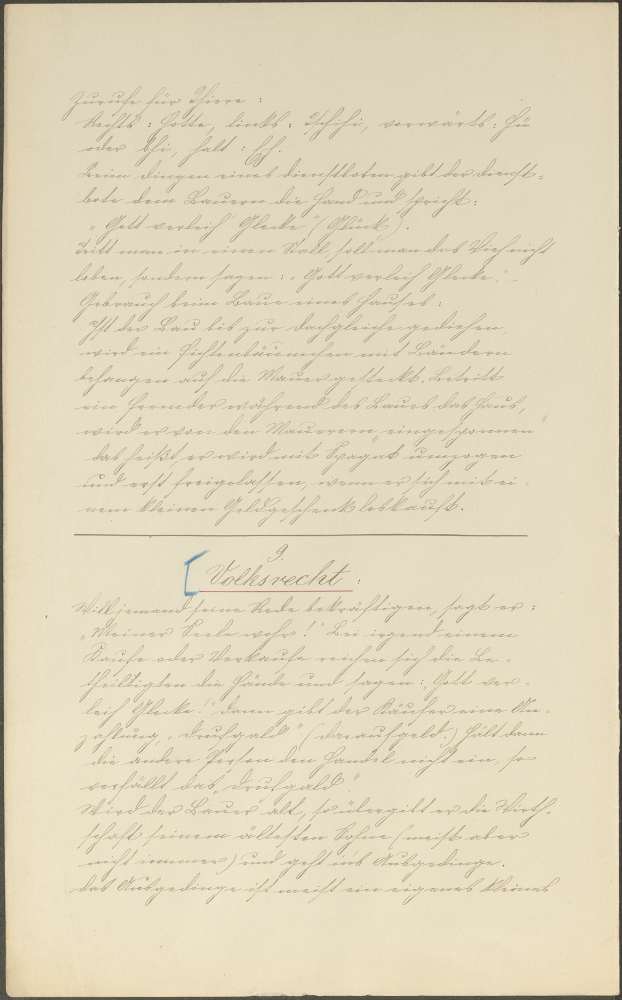 Zurufe für Thiere :
Rechts : Hotte, links : Tschihi, vorwärts : Hü
oder Chi, halt : Eh.
Beim dingen eines dienstboten gibt der dienst-
bote dem Bauern die Hand und spricht :
„Gott verleih Glecke“ (Glück).
Tritt man in einen Stall, soll man das Vieh nicht
loben, sondern sagen : „Gott verleih Glecke.“
Gebrauch beim Baue eines Hauses :
Ist der Bau bis zur dachgleiche gediehen,
wird ein Fichtenbäumchen mit Bändern
behangen auf die Mauer gesteckt. Betritt
ein Fremder während des Baues das Haus,
wird er von den Maurern „eingesponnen“
das heißt, er wird mit Spagat umzogen
und erst freigelassen, wenn er sich mit ei-
nem kleinen Geldgeschenk loskauft.
9.
Volksrecht.
Will jemand seine Rede bekräftigen, sagt er :
„Meiner Seele wohr!“ Bei irgend einem
Kaufe oder Verkaufe reichen sich die Be-
theiligten die Hände und sagen : „Gott ver-
leih Glecke!“ dann gibt der Käufer eine An-
zahlung, „Drufgald“ (daraufgeld.) Hält dann
die andere Person den Handel nicht ein, so
verfällt das „Drufgald“
Wird der Bauer alt, so übergibt er die Wirth-
schaft seinem ältesten Sohne (meist aber
nicht immer) und geht in's Ausgedinge.
das Ausgedinge ist meist ein eigenes kleines